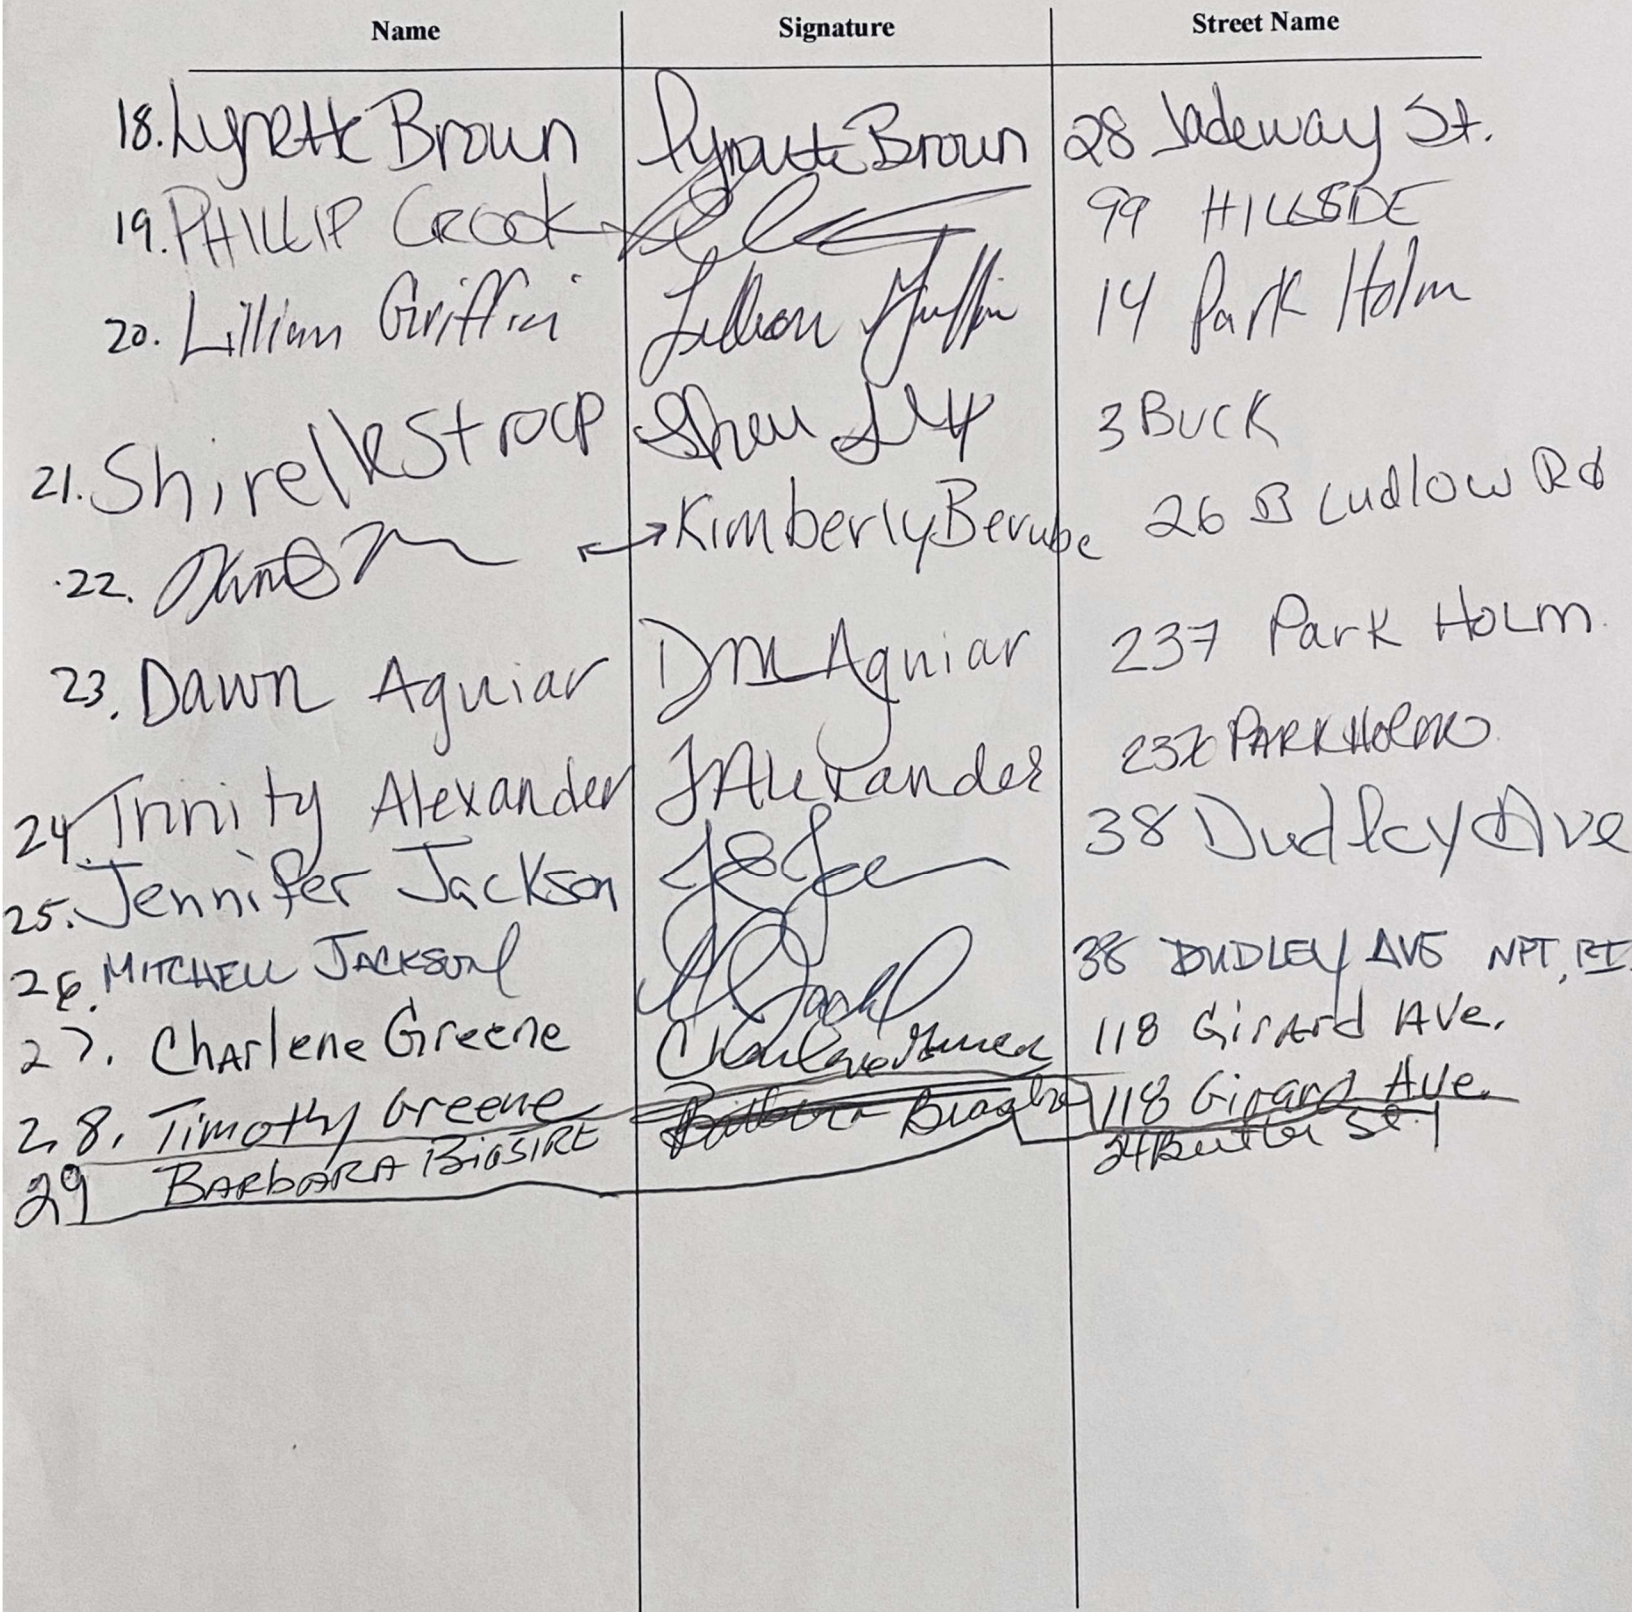 Name Signature Street Name
18. Lynette Brown Lynette Brown 28 Jadeway St.
19. PHILLIP CROOK 99 HILLSIDE
20. Lillian Griffin Lillian Griffin 14 Park Holm
21. Shirelle Stroop 3 BUCK
22. KimberlyBerube 26 B Ludlow Rd
23. Dawn Aguiar DM Aguiar 237 Park HOLM
24 Trinity Alexander TAlexander PARKHOLM
25. Jennifer Jackson 38 Dudley Ave
26. MITCHELL JACKSON 38 DUDLEY AVE NPT, RI
27. Charlene Greene Charlene Greene 118 Girard Ave.
28. Timothy Greene 118 Girard Ave.
29 BARBARA Barbara 24 Butler St.